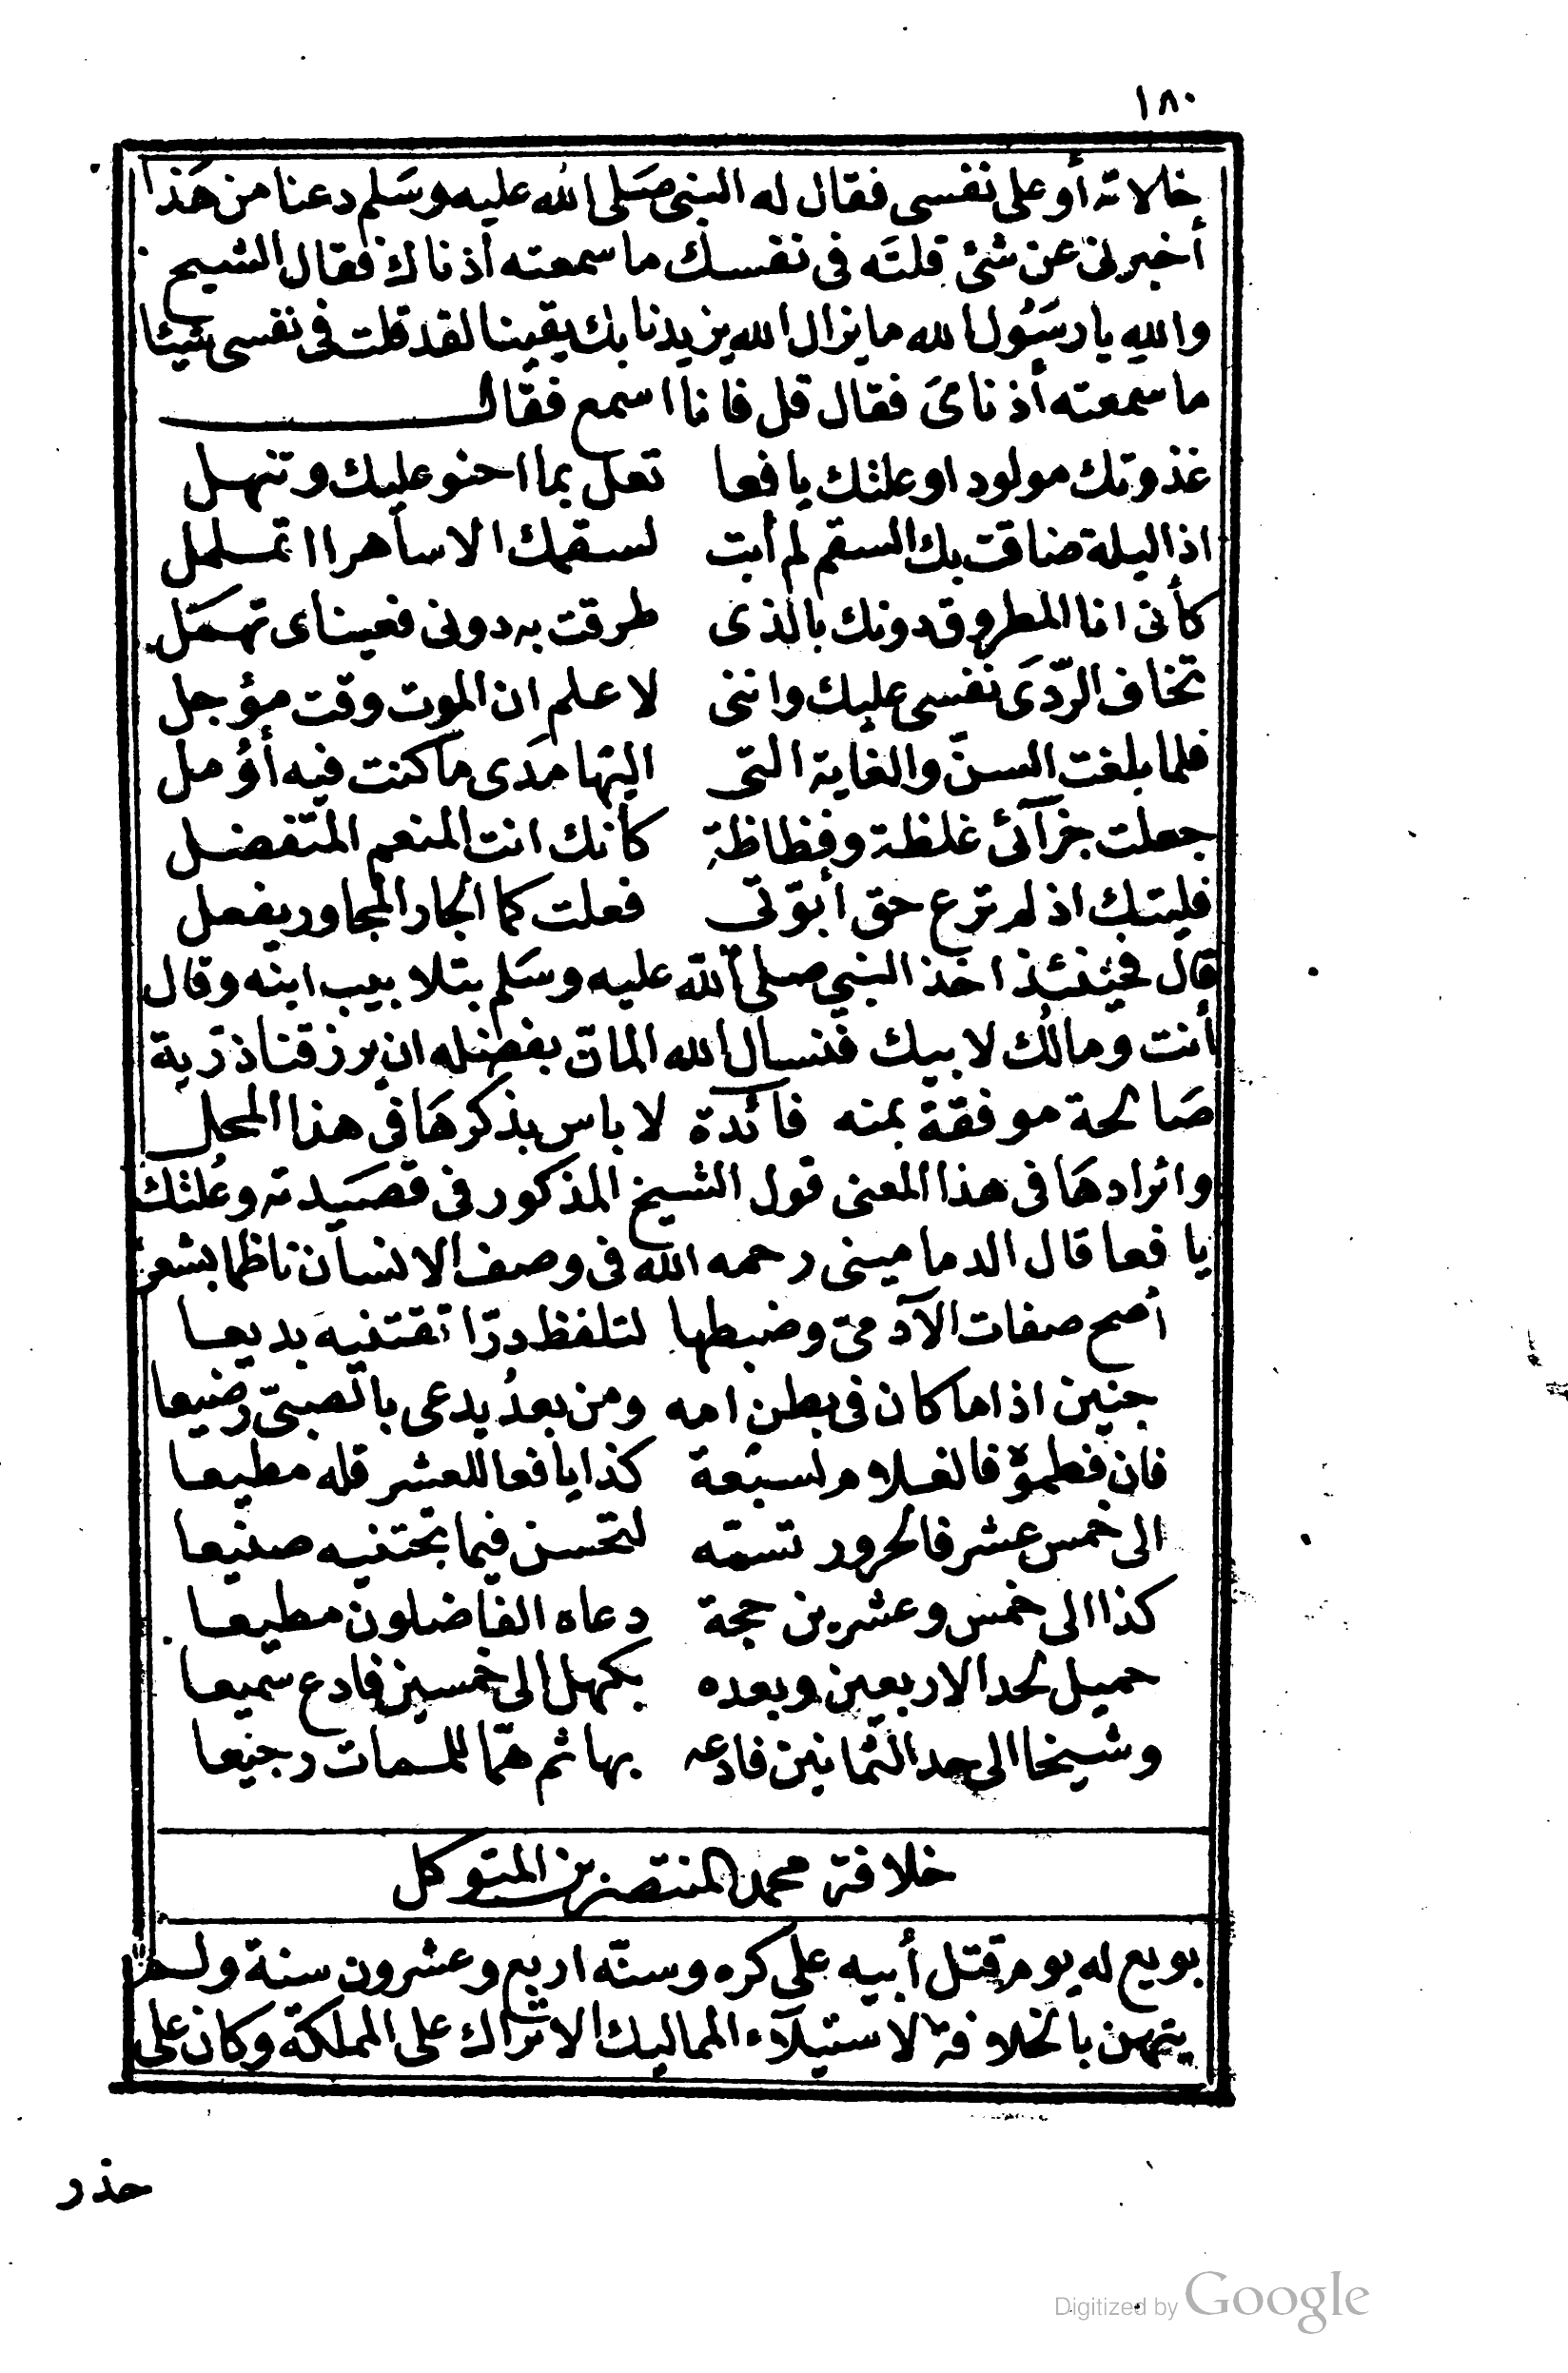 ١٨٠
خالاته أو على نفسى فقال له النبى صَلى الله عليه وسَلم دعنا من هَذا
أخبرنى عن شئ قلتَه فى نفسك ما سمعته أذناك فقال الشيخ
والله يا رسَوُل الله ما يزال الله يزيدنا بك يقينا لقد قلت فى نفسى شيئا
ما سمعته أذناىَ فقال قل فانا اسمع فقال
غذوتك مولودا وعلتك يافعا تعل بما احنو عليك وتنهل
اذا ليلة ضاقت بك السقم لم أبت لسقمك الا ساهرا اتململ
كأنى انا المطروق دونك بالذى طرقت به دونى فعيناى تهمَل
تخاف الرّدَى نفسى عليك واننى لاعلم ان الموت وقت مؤجل
فلما بلغت السنّ والغاية التى اليها مدَى ما كنت فيه أؤمل
جعلت جزآئى غلظة وفظاظة كأنك انت المنعم المتفضل
فليتك اذ لم ترع حق أبوّتى فعلت كما الجار المجاور يفعل
قال فحينئذ اخذ النبى صلى الله عليه وسَلم بتلابيب ابنه وقال
أنت ومالك لابيك فنسال الله المانّ بفضله ان يرزقنا ذرّية
صَالحة موفقة بمنه فائدة لا باس بذكرهَا فى هذا المحل
وايرادهَا فى هذا المعنى قول الشيخ المذكور فى قصَيدته وعُلتك
يافعا قال الدمامينى رحمه الله فى وصف الانسان ناظما بشعر
أصح صفات الآدمىّ وضبطها لتلفظ درّا تقتنيه بديعا
جنين اذا ما كان فى بطن امه ومن بعدُ يدعى بالصبىّ رضيعا
فان فطموه فالغلام لسبعة كذا يافعا للعشر قله مطيعا
الى خمس عشر فالحرور تسمّه لتحسن فيما تجتنيه صنيعا
كذا الى خمس وعشرين حجة دعاه الفاضلون مطيعا
جميل لحد الاربعين وبعده بكهل الى خمسين فادع سميعا
وشيخا الى حد الثمانين فادعه بها ثم همّا للممات رجيعا
خلافة محمد المنتصر بن المتوكل
بويع له يوم قتل أبيه على كره وسنّه اربع وعشرون سنة ولم
يتهن بالخلافة لاستيلآء المماليك الاتراك على المملكة وكان على
حذر
Digitized by Google